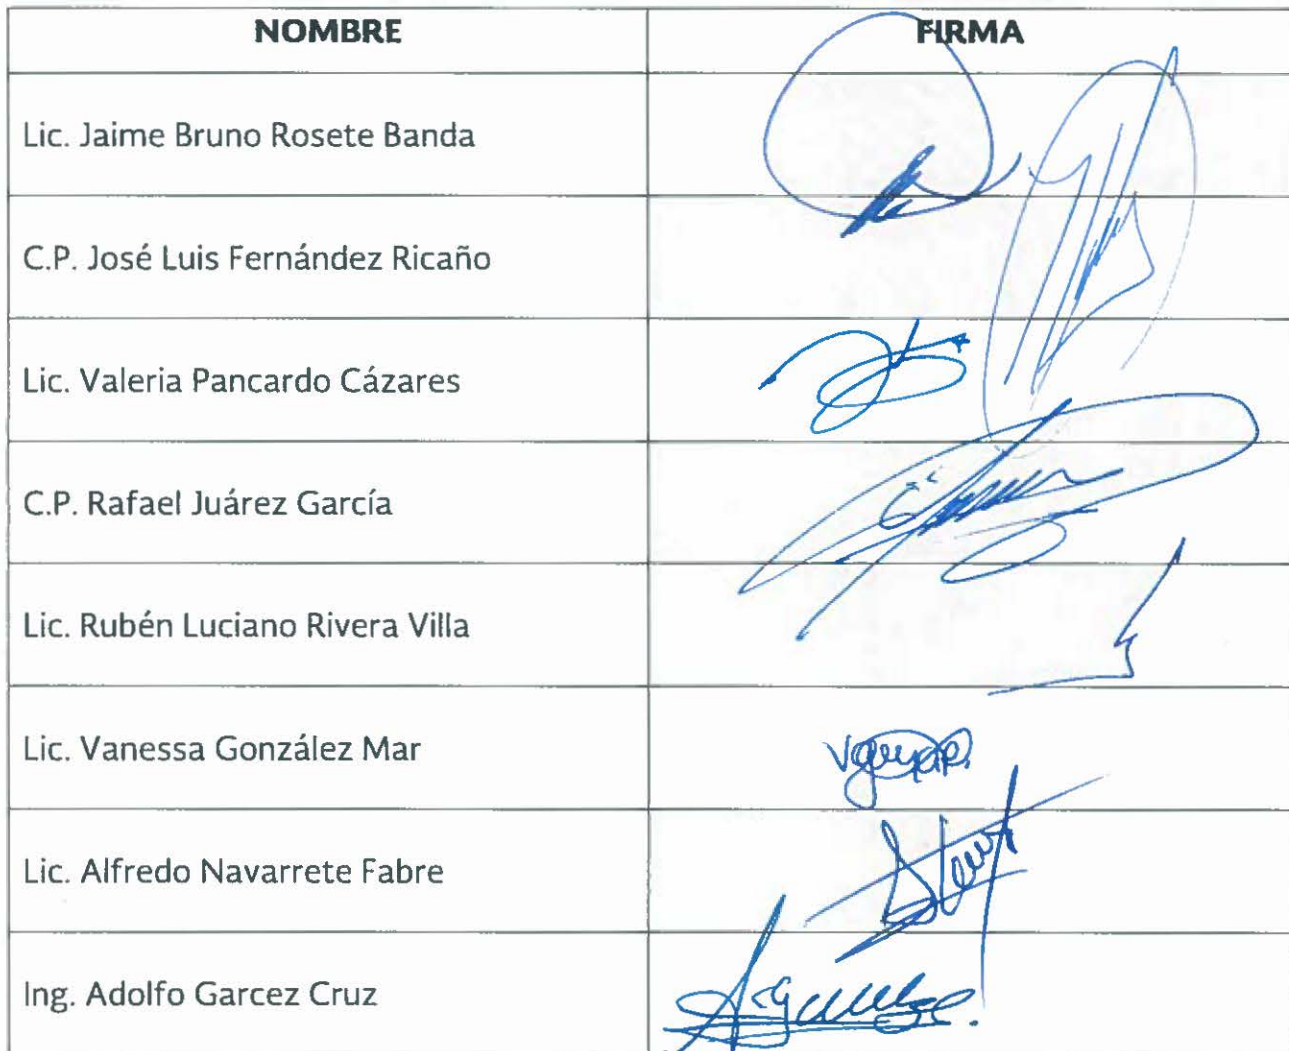 NOMBRE FIRMA
Lic. Jaime Bruno Rosete Banda
C.P. José Luis Fernández Ricaño
Lic. Valeria Pancardo Cázares
C.P. Rafael Juárez García
Lic. Rubén Luciano Rivera Villa
Lic. Vanessa González Mar
Lic. Alfredo Navarrete Fabre
Ing. Adolfo Garcez Cruz